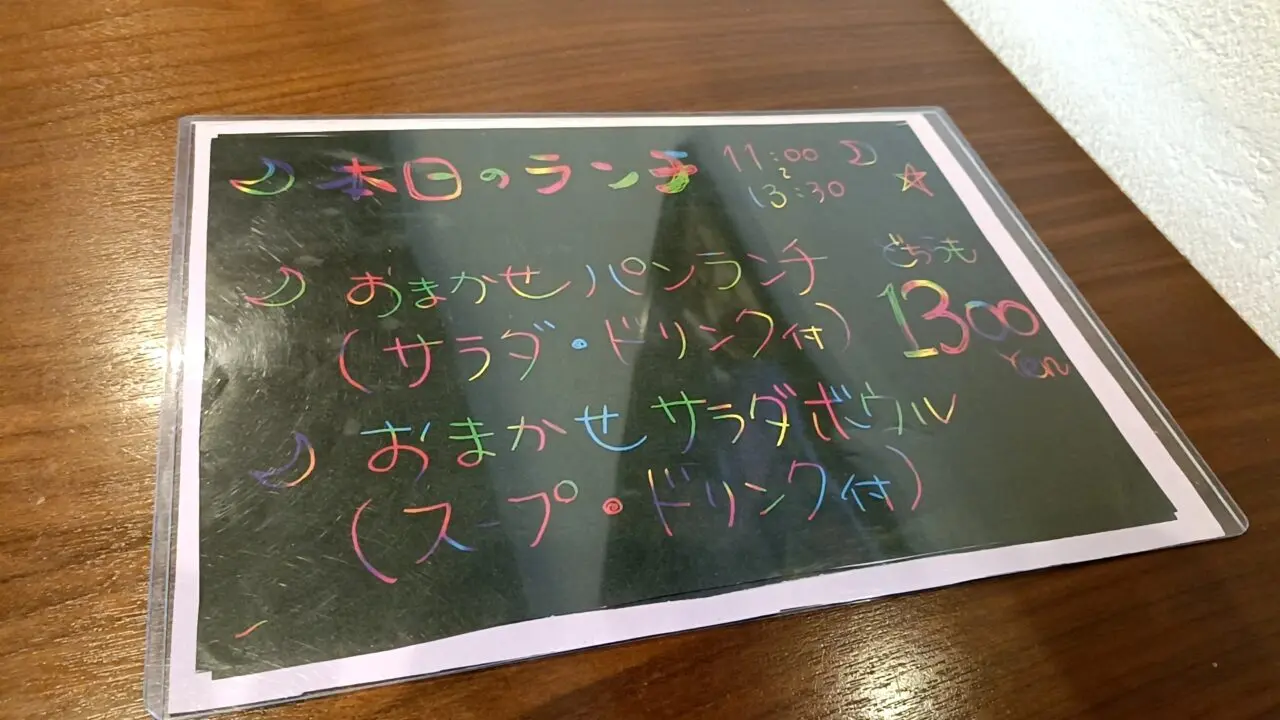 本日のランチ
11:00
~
13:30
おまかせパンランチ
(サラダ・ドリンク付)
どちらも
1300
Yen
おまかせサラダボウル
(スープ・ドリンク付)